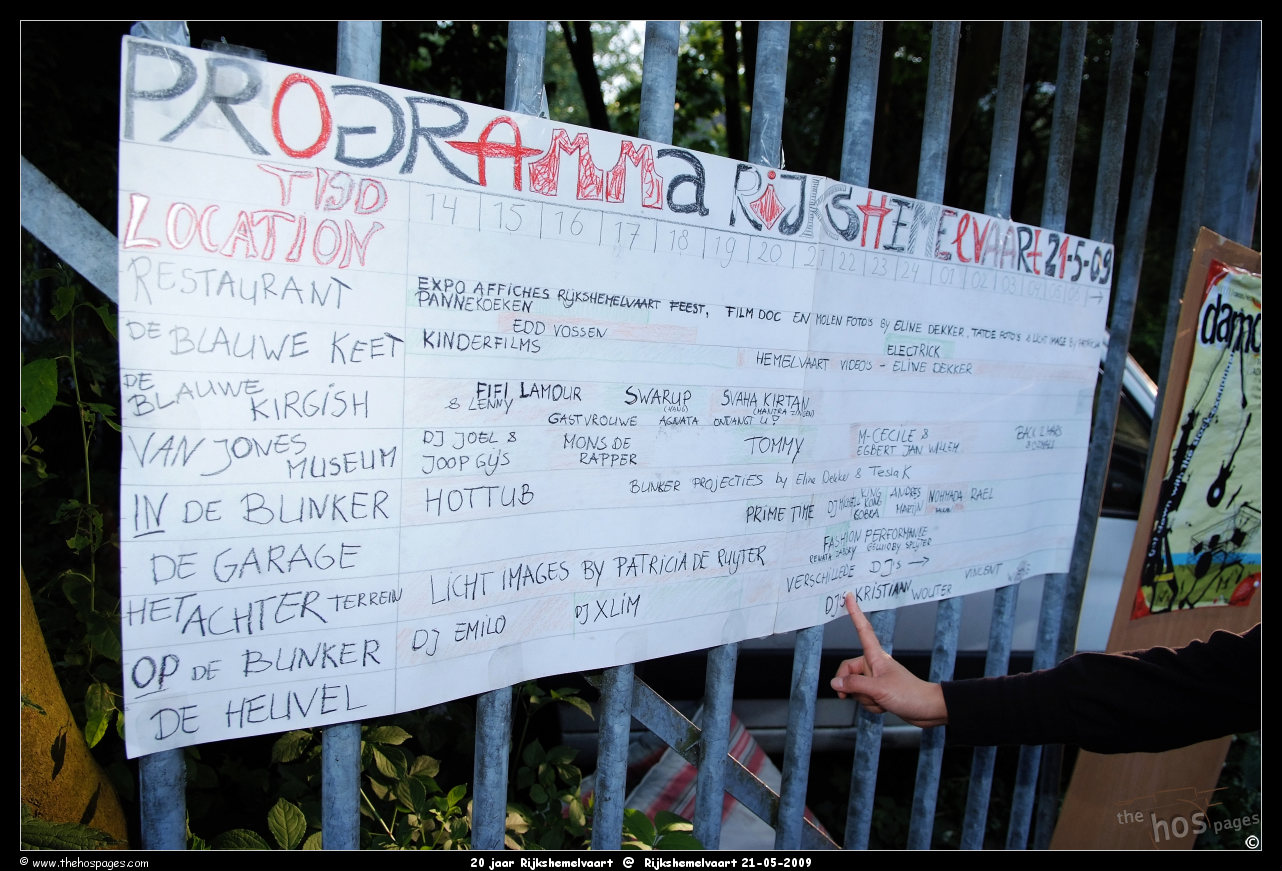 PROGRAMMA RIJKSHEMELVAART 21-5-09
TIJD 14 15 16 17 18 19 20 21 22 23 24 01 02 03 04 05 →
LOCATION
RESTAURANT EXPO AFFICHES RIJKSHEMELVAART FEEST, FILM DOC EN MOLEN FOTO'S BY ELINE DEKKER, FOTO'S & LICHT IMAGE BY PATRICIA
PANNEKOEKEN
DE BLAUWE KEET EDD VOSSEN ELECTRICK
KINDERFILMS HEMELVAART VIDEO'S - ELINE DEKKER
DE BLAUWE KIRGISH FIFI LAMOUR & LENNY SWARUP SVAHA KIRTAN (MANTRA ZINGEN)
GASTVROUWE AGNATA ONTVANGT U!
VAN JONES MUSEUM DJ JOEL & JOOP GIJS MONS DE RAPPER TOMMY M-CECILE & EGBERT JAN WILLEM
IN DE BUNKER HOTTUB BUNKER PROJECTIES by Eline Dekker & Tesla K
PRIME TIME DJ KING KONG KOBRA ANDRES MARTIN NOHMADA RAEL
DE GARAGE FASHION PERFORMANCE
HET ACHTER TERREIN LICHT IMAGES BY PATRICIA DE RUIJTER VERSCHILLEDE DJ's →
OP DE BUNKER DJ EMILO DJ XLIM DJ'S KRISTIAN WOUTER VINCENT
DE HEUVEL
damo
the hos pages
©
© www.thehospages.com
20 jaar Rijkshemelvaart @ Rijkshemelvaart 21-05-2009